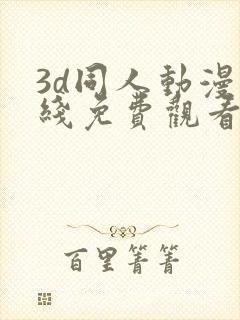 3d同人動漫
綫免費觀看
百里菁菁